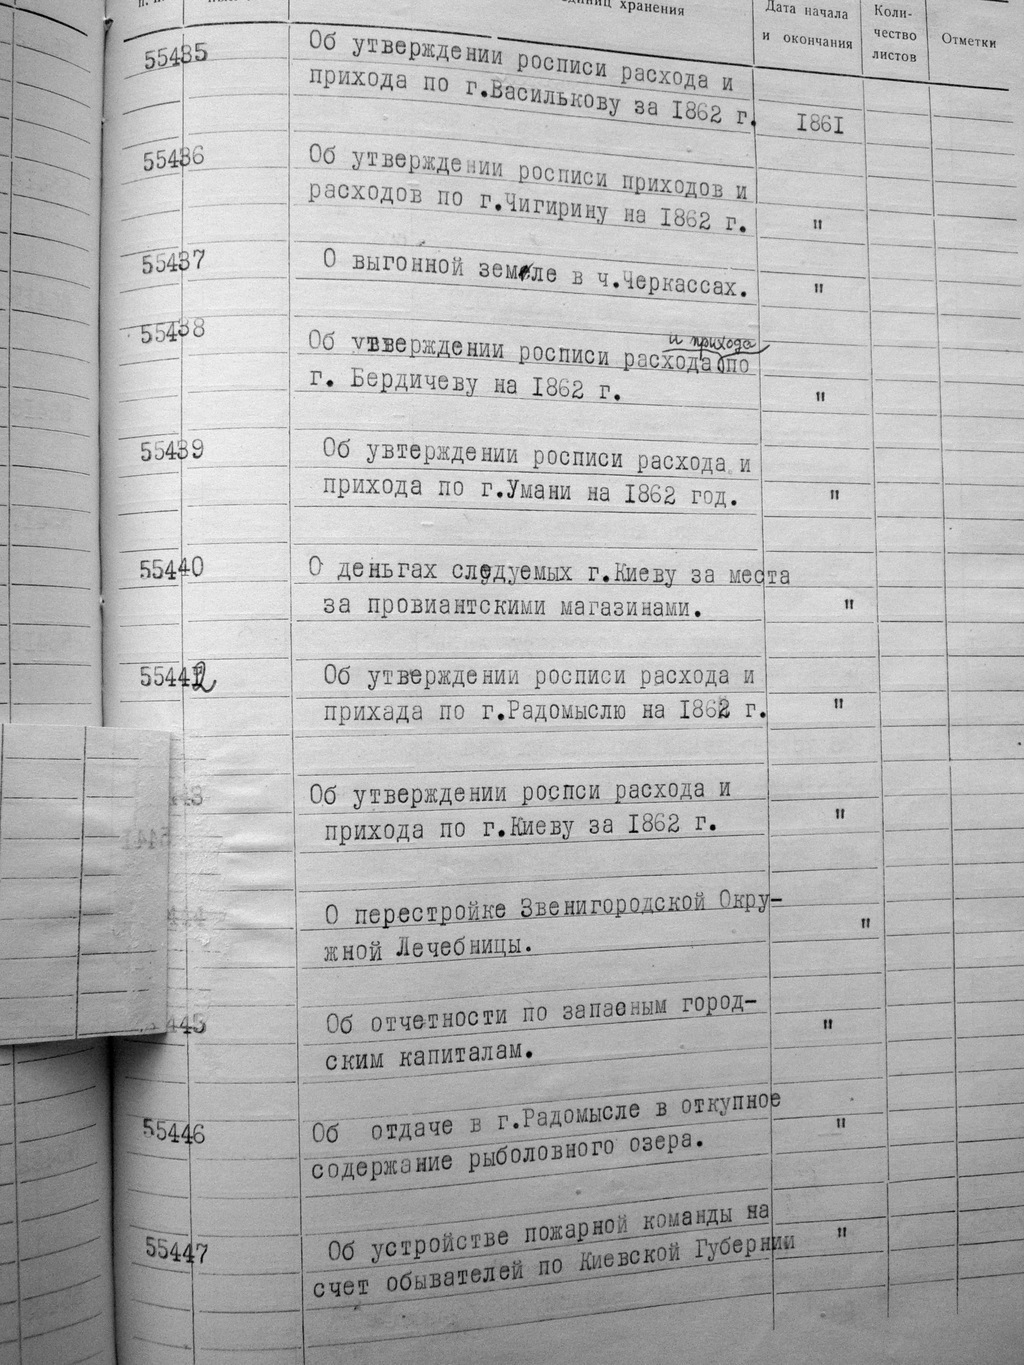 единиц хранения
Дата начала
и окончания
Коли-
чество
листов
Отметки
55435 Об утверждении росписи расхода и
прихода по г.Василькову за 1862 г. 1861
55436 Об утверждении росписи приходов и
расходов по г.Чигирину на 1862 г. "
55437 О выгонной земле в ч.Черкассах. "
и прихода
55438 Об утвверждении росписи расхода по
г. Бердичеву на 1862 г. "
55439 Об увтерждении росписи расхода и
прихода по г.Умани на 1862 год. "
55440 О деньгах следуемых г.Киеву за места
за провиантскими магазинами. "
55442 Об утверждении росписи расхода и
прихада по г.Радомыслю на 1862 г. "
Об утверждении роспси расхода и
прихода по г.Киеву за 1862 г. "
О перестройке Звенигородской Окру-
жной Лечебницы. "
445 Об отчетности по запасным город-
ским капиталам. "
55446 Об отдаче в г.Радомысле в откупное
содержание рыболовного озера. "
55447 Об устройстве пожарной команды на
счет обывателей по Киевской Губернии "